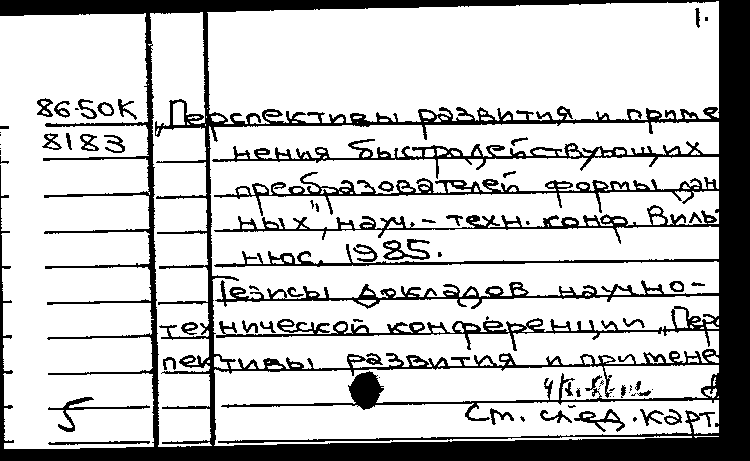 1.
86-50К „Перспективы развития и приме
8183 нения быстродействующих
преобразователей формы дан
ных", науч.- техн. конф. Виль
нюс. 1985.
Тезисы докладов научно-
технической конференции „Перс
пективы развития и примене
5 См. след. карт.